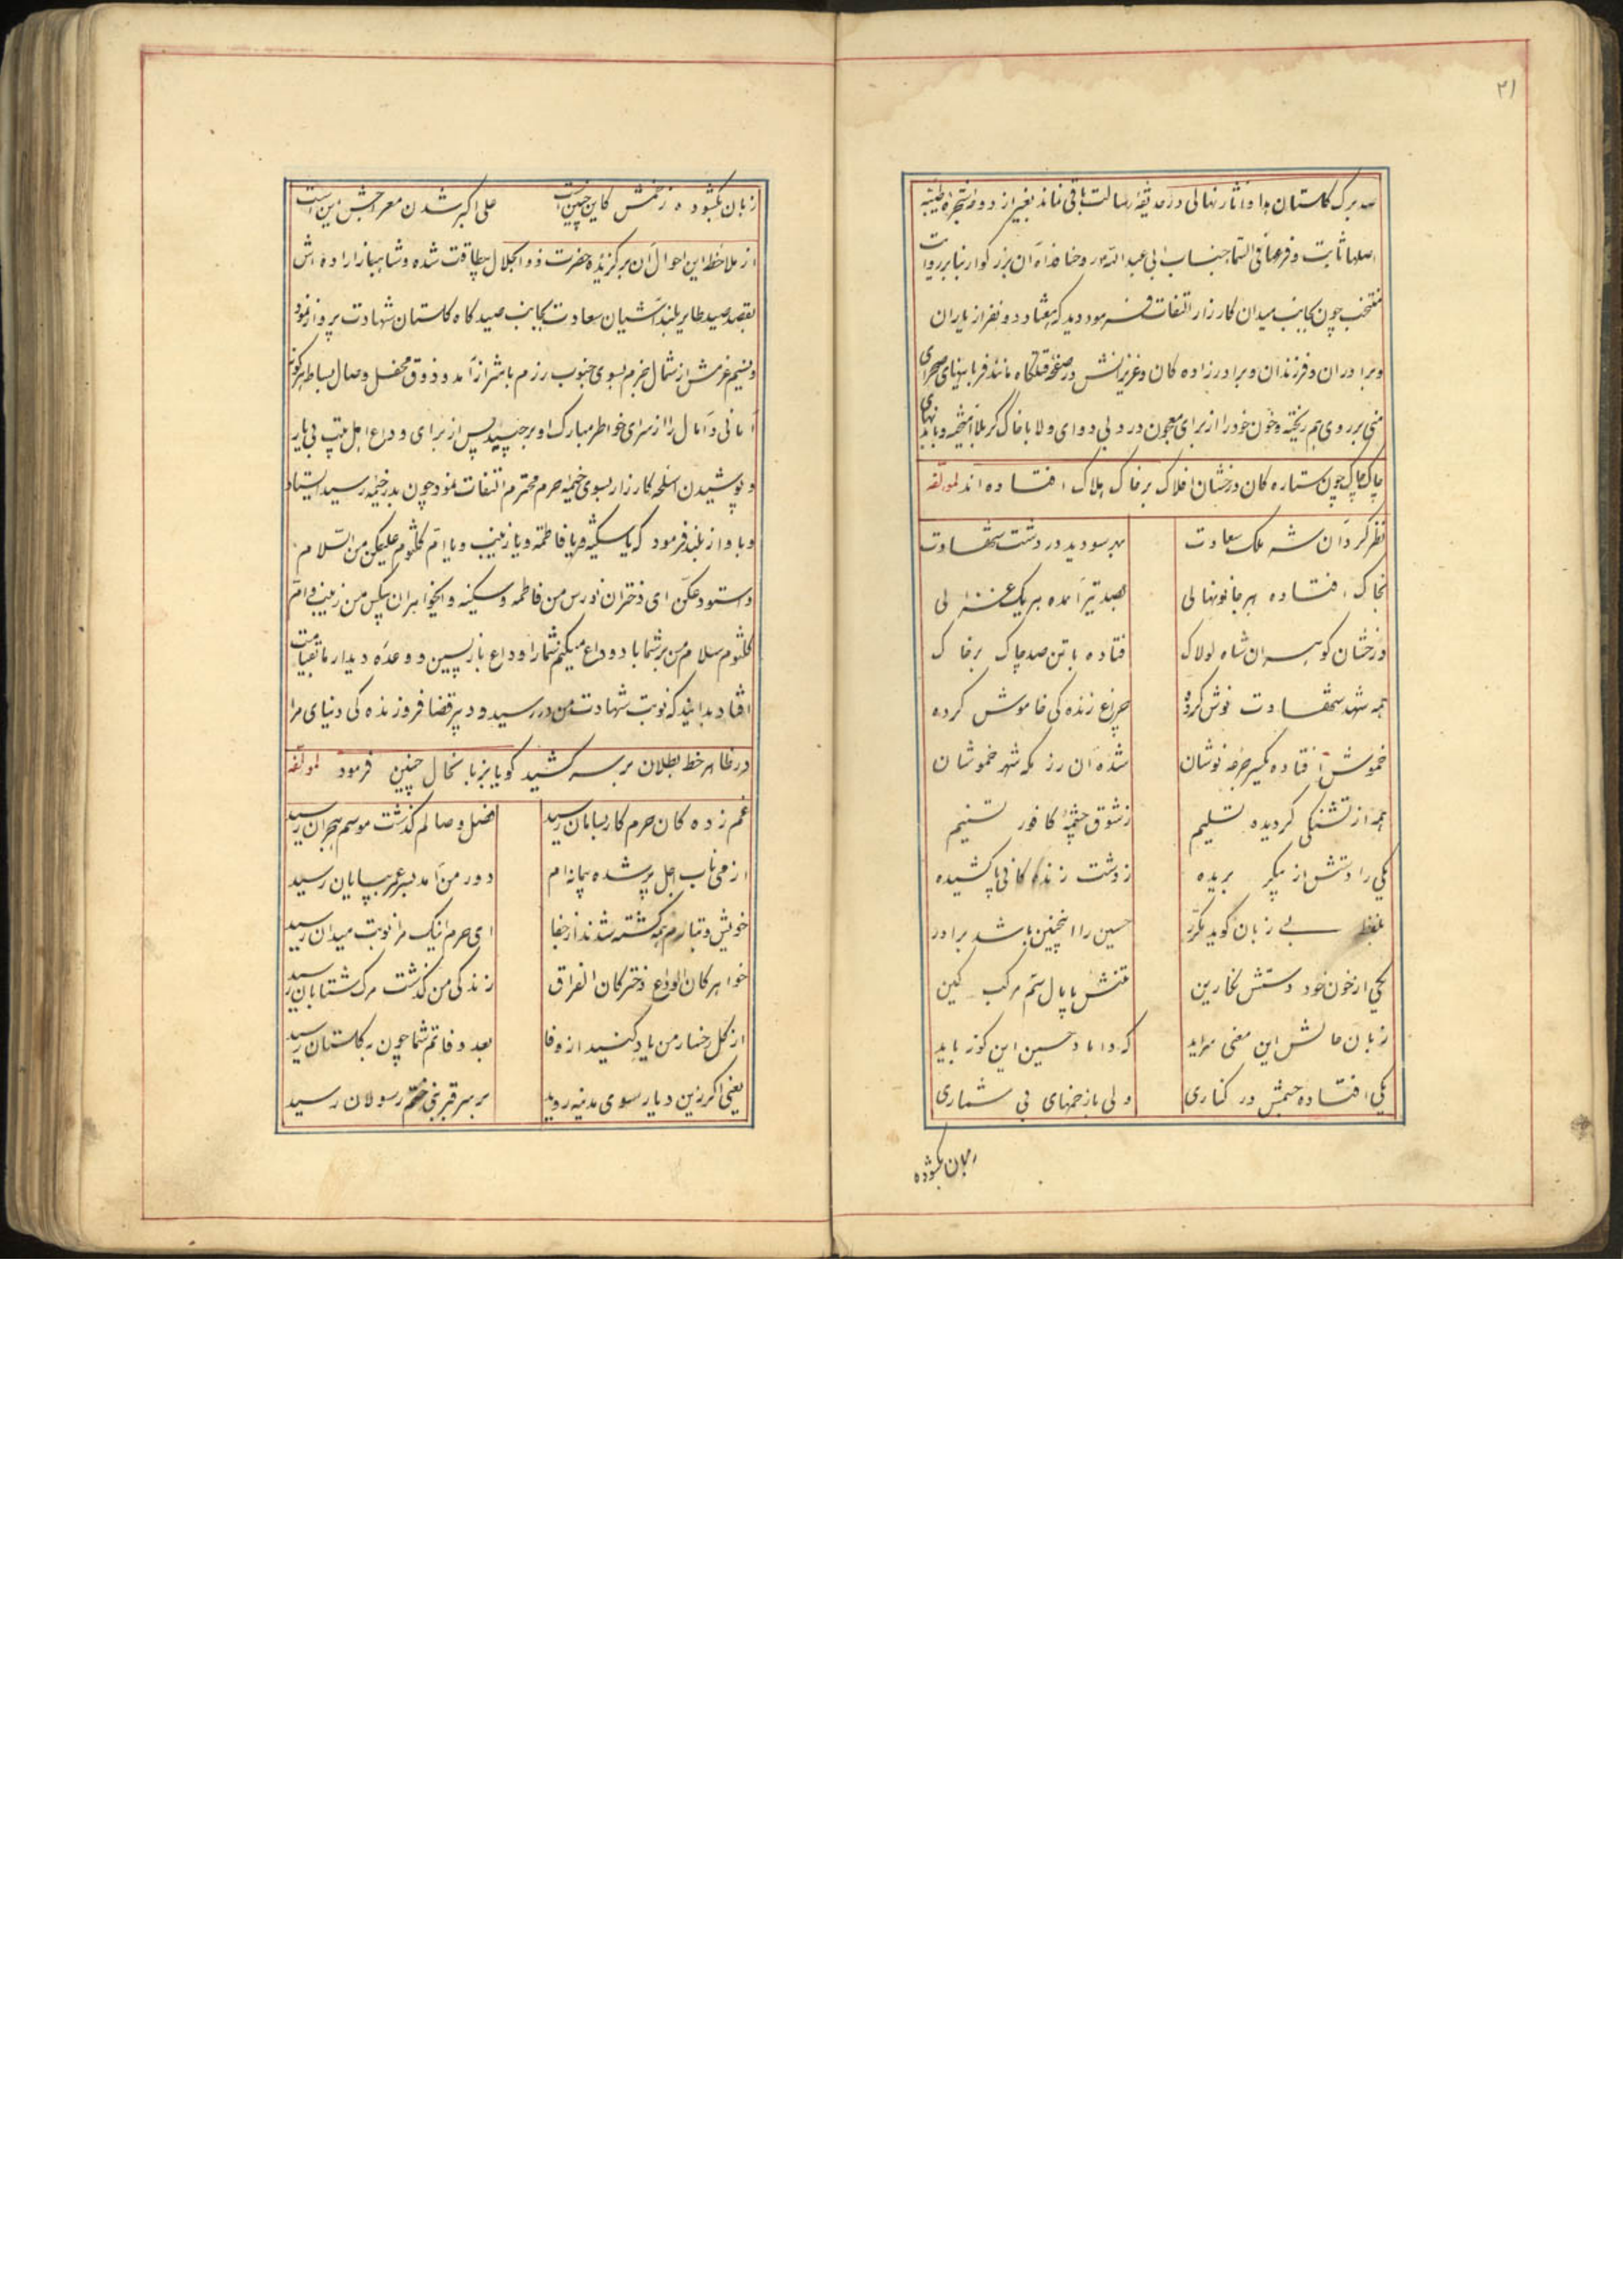 ۲۱
صد برک کلستان هدا و انثار نهالی در حدیقهٔ رسالت باقی نماند بغیر از دوحهٔ شجرهٔ طیبه
اصلها ثابت و فرعها فی السّما جناب ابی عبد الله روحنا فداه آن بزرکوار بنا بر روایت
منتخب چون بجانب میدان کارزار التفات فرمود دید که هفتاد دو نفر از یاران
و برادران و فرزندان و برادرزاده کان و عزیزانش در صفحهٔ قتلکاه مانند قربانیهای صحرای
منی بر روی هم ریخته و خون خود را از برای معجون درد بی دوای ولا با خاک کربلا آمیخته و با بدنهای
چاک چاک چون ستاره کان درخشان افلاک بر خاک هلاک افتاده اند لمؤلفه
نظر کرد آن شه ملک سعادت بهر سو دید در دشت شهادت
بخاک افتاده هر جا نونهالی بصد تیر آمده هر یک غزالی
درخشان کوهر ان شاه لولاک فتاده با تن صد چاک بر خاک
همه شهد شهادت نوش کرده چراغ زنده کی خاموش کرده
خموش افتاده یکسر جرعه نوشان شده آن رزمکه شهر خموشان
همه از تشنکی کردیده تسلیم ز شوق چشمهٔ کافور تسنیم
یکی را دستش از پیکر بریده ز دشت زندکانی پا کشیده
بلفظ بی زبان کوید مکرّر حسین را اینچنین باشد برادر
یکی از خون خود دستش نکارین تنش پا پال ستم مرکب کین
زبان حالش این معنی سراید که داماد حسین این کونه باید
یکی افتاده جسمش در کناری ولی با زخمهای بی شماری
زبان بکشوده
زبان بکشوده زخمش کاین چنین است علی اکبر شدن معراجش این است
از ملاحظهٔ این احوال آن برکزیدهٔ حضرت ذو الجلال بیطاقت شده و شاهباز اراده اش
بقصد صید طایر بلند آشیان سعادت بجانب صیدکاه کلستان شهادت پرواز نمود
و نسیم عزمش از شمال خرم بسوی جنوب رزم باهتزاز آمد و ذوق محفل وصال بساط هرکونه
امانی و آمال را از سرای خواطر مبارک او برچید پس از برای وداع اهل بیت بی یار
و پوشیدن اسلحه کارزار بسوی خیمه حرم محترم التفات نمود چون بدر خیمه رسید ایستاد
و باواز بلند فرمود که یا سکینة و یا فاطمة و یا زینب و یا ام کلثوم علیکن منی السّلام
و استودعکنّ ای دختران نورس من فاطمه و سکینه و ایخواهران بیکس من زینب و امّ
کلثوم سلام من بر شما باد وداع میکنم شما را وداع بازپسین و وعده دیدار ما بقیامت
افتاد بدانید که نوبت شهادت من در رسید و دبیر قضا فرد زنده کی دنیای مرا
در ظاهر خط بطلان بر سر کشید کویا بزبانحال چنین فرمود لمؤلفه
غم زده کان حرم کار بسامان رسید فصل وصالم کذشت موسم هجران رسید
از می ناب اجل پر شده پیمانه ام دور من آمد بسر عمر بپایان رسید
خویش و تبارم همه کشته شدند از جفا ای حرم اینک مرا نوبت میدان رسید
خواهرکان الوداع دخترکان الفراق زندکی من کذشت مرک شتابان رسید
از کل رخسار من یاد کنید از وفا بعد وفاتم شما چون بکلستان رسید
یعنی اکر زین دیار سوی مدینه روید بر سر قبر نبی ختم رسولان رسید